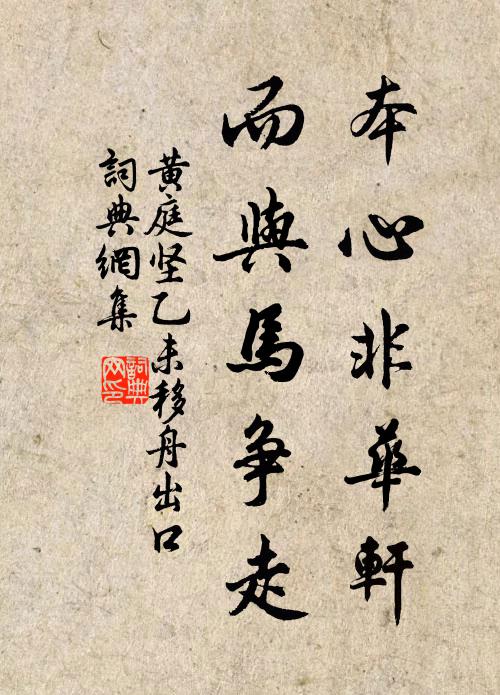 本心非華軒
而與馬争走
黄庭坚乙未移舟出口
詞典網集
詞典網印